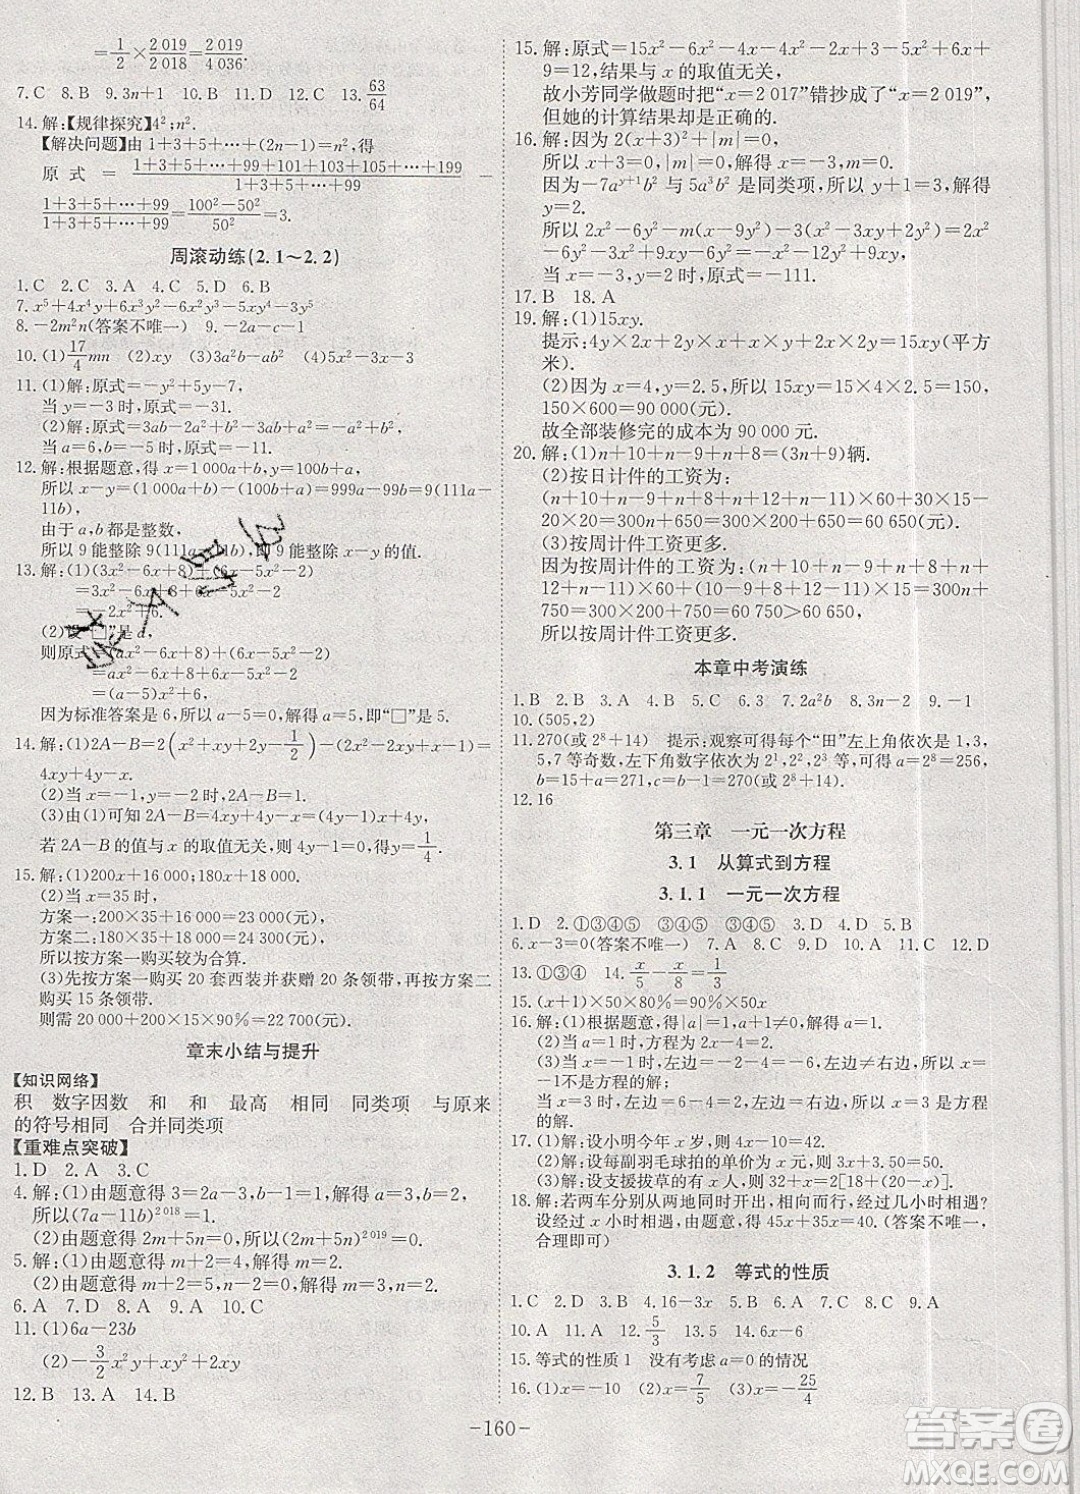 =1/2×2 019/2 018=2 019/4 036.
7.C 8.B 9.3n+1 10.B 11.D 12.C 13.63/64
14.解:【规律探究】4²;n².
【解决问题】由1+3+5+…+(2n-1)=n²,得
原式=(1+3+5+…+99+101+103+…+199)/(1+3+5+…+99)-
(1+3+5+…+99)/(1+3+5+…+99)=(100²-50²)/50²=3.
周滚动练(2.1～2.2)
1.C 2.C 3.A 4.C 5.D 6.B
7.x⁵+4x⁴y+6x³y²-6x²y³-5xy⁴-3y⁵
8.-2m²n(答案不唯一) 9.-2a-c-1
10.(1)17/4mn (2)xy (3)3a²b-ab² (4)5x²-3x-3
11.(1)解:原式=-y²+5y-7,
当y=-3时,原式=-31.
(2)解:原式=3ab-2a²+b²-3ab+a²=-a²+b²,
当a=6,b=-5时,原式=-11.
12.解:根据题意,得x=1 000a+b,y=100b+a,
所以x-y=(1 000a+b)-(100b+a)=999a-99b=9(111a-
11b),
由于a,b都是整数,
所以9能整除9(111a-11b),即9能整除x-y的值.
13.解:(1)(3x²-6x+8)+(6x-5x²-2)
=3x²-6x+8+6x-5x²-2
=-2x²+6.
(2)设“□”是a,
则原式=(ax²-6x+8)+(6x-5x²-2)
=ax²-6x+8+6x-5x²-2
=(a-5)x²+6.
因为标准答案是6,所以a-5=0,解得a=5,即“□”是5.
14.解:(1)2A-B=2(x²+xy+2y-1/2)-(2x²-2xy+x-1)=
4xy+4y-x.
(2)当x=-1,y=-2时,2A-B=1.
(3)由(1)可知2A-B=4xy+4y-x=(4y-1)x+4y,
若2A-B的值与x的取值无关,则4y-1=0,解得y=1/4.
15.解:(1)200x+16 000;180x+18 000.
(2)当x=35时,
方案一:200×35+16 000=23 000(元);
方案二:180×35+18 000=24 300(元).
所以按方案一购买较为合算.
(3)先按方案一购买20套西装并获赠20条领带,再按方案二
购买15条领带.
则需20 000+200×15×90%=22 700(元).
章末小结与提升
【知识网络】
积 数字因数 和 和 最高 相同 同类项 与原来
的符号相同 合并同类项
【重难点突破】
1.D 2.A 3.C
4.解:(1)由题意得3=2a-3,b=1,解得a=3,b=1,
所以(7a-11b)²⁰¹⁸=1.
(2)由题意得2m+5n=0,所以(2m+5n)²⁰¹⁹=0.
5.解:(1)由题意得m+2=4,解得m=2.
(2)由题意得m+2=4,n+5=5,解得m=2,n=0.
6.A 7.D 8.D 9.A 10.D
11.(1)6a-23b
(2)-3/2x²y+xy²+2xy
12.B 13.A 14.B
15.解:原式=15x²-6x²-4x-4x²-5x²+6x+
9=12,结果与x的取值无关,
故小芳同学做题时把“x=2 017”错抄成了“x=2 019”,
但她的计算结果却是正确的.
16.解:因为2(x+3)²+|m|=0,
所以x+3=0,|m|=0,解得x=-3,m=0.
因为-7aʸ⁺¹b²与5a³b²是同类项,所以y+1=3,解
得y=2.
所以2x²-6y²-m(xy-9y²)-(3x²-3xy+7y²)=
2x²-6y²-3x²+3xy-7y²=-x²+3xy-13y².
当x=-3,y=2时,原式=-79.
17.B 18.A
19.解:(1)15xy.
提示:4y×2x+2y×2x+y×x+2y×x=15xy(平方
米).
(2)因为x=4,y=2.5,所以15xy=15×4×2.5=150,
150×600=90 000(元).
故全部装修完的成本为90 000元.
20.解:(1)n+10+n-9+n+8=(3n+9)辆.
(2)按日计件的工资为:
(3)按周计件工资更多.
因为按周计件的工资为:
所以按周计件工资更多.
本章中考演练
1.B 2.B 3.A 4.B 5.C 6.3 7.2a²b 8.3n-2 9.-1
10.(505,2)
11.270(或2⁸+14) 提示:观察可得每个“田”左上角依次是1,3,
5,7等奇数,左下角数字依次为2¹,2²,2³等数.可得a=2⁸=256,
b=15+a=271,c=b-1=270(或2⁸+14).
12.16
第三章 一元一次方程
3.1 从算式到方程
3.1.1 一元一次方程
1.D 2.①③④⑤ ③④⑤ 3.A 4.D 5.B
6.x-3=0(答案不唯一) 7.A 8.C 9.A 10.D 11.B 12.D
13.①③④ 14.x/5-x/8=1/3
15.(x+1)×50×80%=90%×50x
16.解:(1)根据题意,得|a|=1,a+1≠0,解得a=1.
(2)当a=1时,左边≠右边,所以x=
-1不是方程的解;
的解.
17.(1)解:设小明今年x岁,
(2)解:设每副羽毛球拍的单价为x元,
(3)解:设支援拔草的有x人,则x+31=2[18+(20-x)].
18.解:若两车分别从两地同时开出,相向而行,经过几小时相遇?
设经过x小时相遇,由题意,得45x+35x=40.(答案不唯一,
合理即可)
3.1.2 等式的性质
1.C 2.D 3.B 4.16-3x 5.2 6.3 7.D 8.C 9.A
10.A 11.A 12.5/3 13.5 14.6x-6
15.等式的性质1 没有考虑a=0的情况
16.(1)x=-10 (2)x=7/5 (3)x=-25/4
-160-
答案圈
MXQE.COM